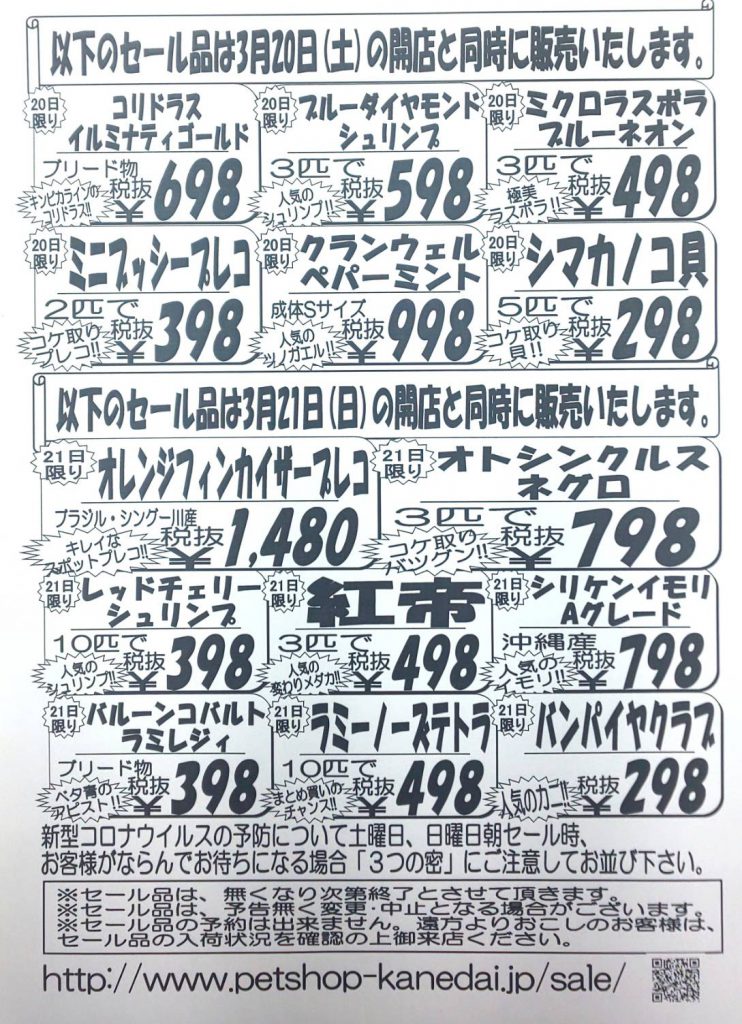 以下のセール品は3月20日(土)の開店と同時に販売いたします。
20日限り
コリドラス
イルミナティゴールド
ブリード物
キンピカラインの
コリドラス!!
税抜
¥698
20日限り
ブルーダイヤモンド
シュリンプ
3匹で
人気の
シュリンプ!!
税抜
¥598
20日限り
ミクロラスボラ
ブルーネオン
3匹で
極美
ラスボラ!!
税抜
¥498
20日限り
ミニブッシープレコ
2匹で
コケ取り
プレコ!!
税抜
¥398
20日限り
クランウェル
ペパーミント
成体Sサイズ
人気の
ツノガエル!!
税抜
¥998
20日限り
シマカノコ貝
5匹で
コケ取り
貝!!
税抜
¥298
以下のセール品は3月21日(日)の開店と同時に販売いたします。
21日限り
オレンジフィンカイザープレコ
ブラジル・シングー川産
キレイな
スポットプレコ!!
税抜
¥1,480
21日限り
オトシンクルス
ネグロ
3匹で
コケ取り
バツグン!!
税抜
¥798
21日限り
レッドチェリー
シュリンプ
10匹で
人気の
シュリンプ!!
税抜
¥398
21日限り
紅帝
3匹で
人気の
変わりメダカ!!
税抜
¥498
21日限り
シリケンイモリ
Aグレード
沖縄産
人気の
イモリ!!
税抜
¥798
21日限り
バルーンコバルト
ラミレジィ
ブリード物
ベタ青の
アピスト!!
税抜
¥398
21日限り
ラミーノーズテトラ
10匹で
まとめ買いの
チャンス!!
税抜
¥498
21日限り
バンパイヤクラブ
人気のカニ!!
税抜
¥298
新型コロナウイルスの予防について土曜日、日曜日朝セール時、
お客様がならんでお待ちになる場合「3つの密」にご注意してお並び下さい。
※セール品は、無くなり次第終了とさせて頂きます。
※セール品は、予告無く変更・中止となる場合がございます。
※セール品の予約は出来ません。遠方よりおこしのお客様は、
セール品の入荷状況を確認の上御来店ください。
http://www.petshop-kanedai.jp/sale/